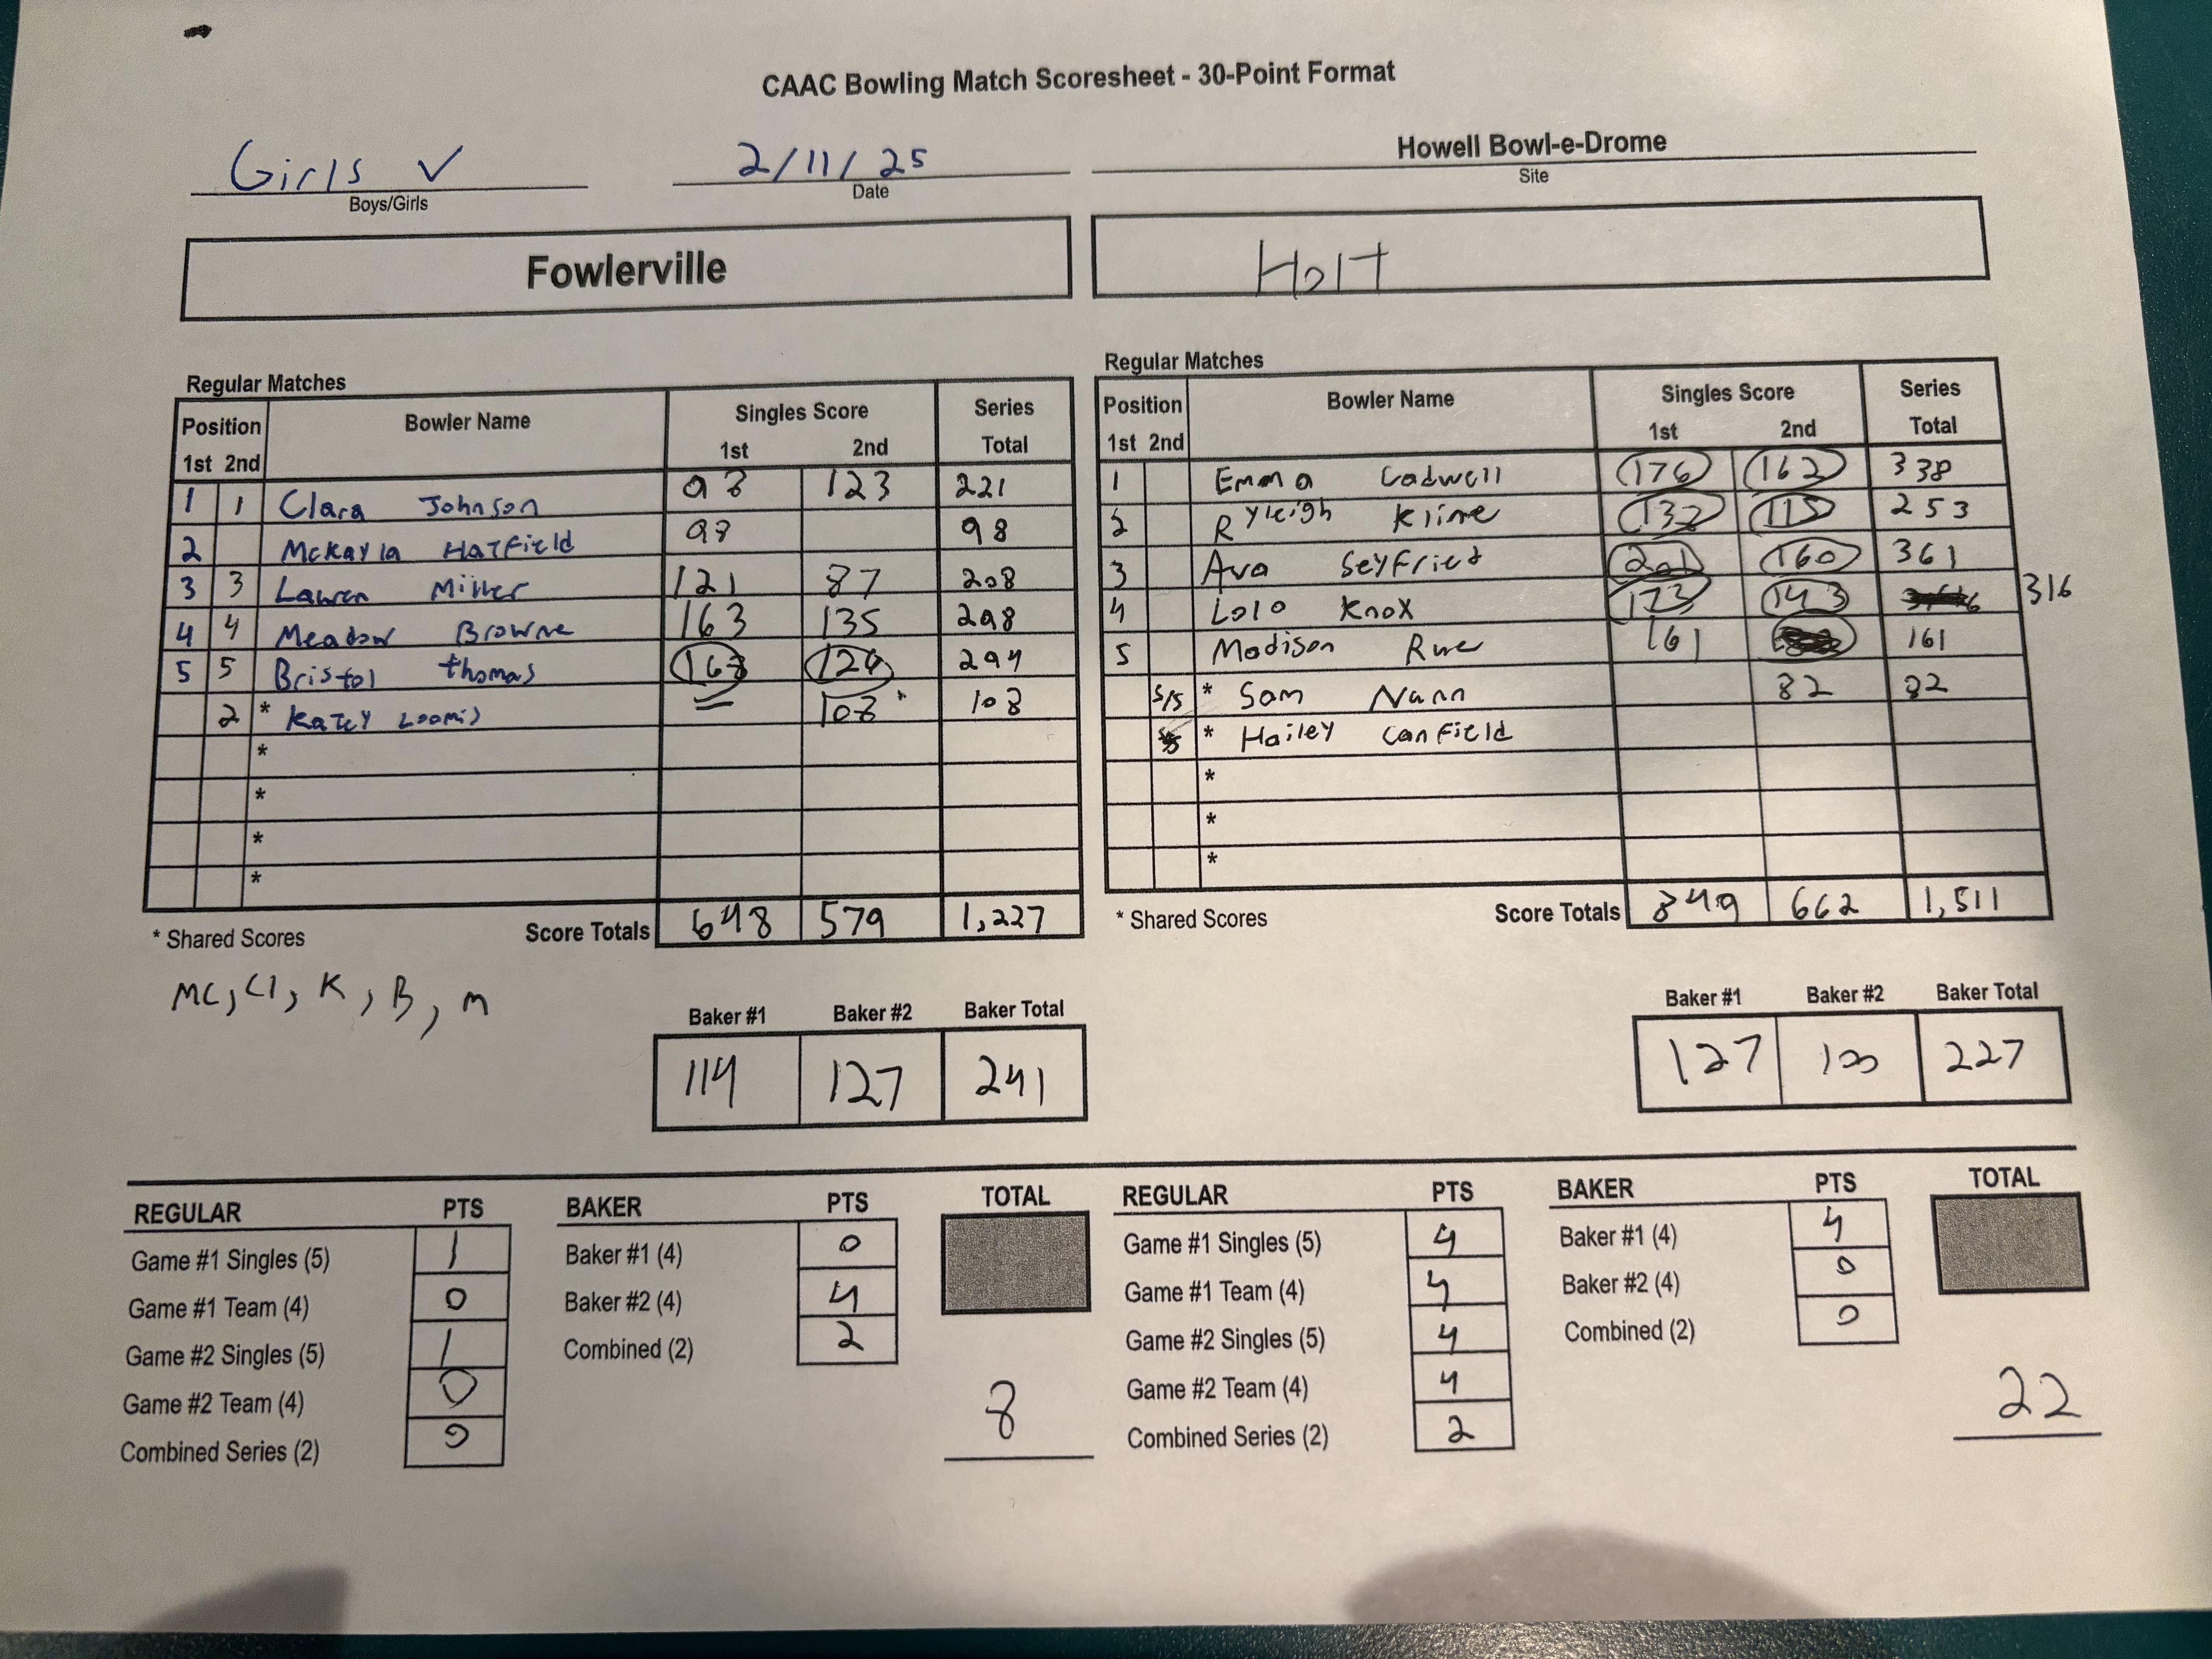 CAAC Bowling Match Scoresheet - 30-Point Format
Girls V 2/11/25 Howell Bowl-e-Drome
Boys/Girls Date Site
Fowlerville Holt
Regular Matches
Position Bowler Name Singles Score Series
1st 2nd 1st 2nd Total
1 1 Clara Johnson 98 123 221
2 McKayla Hatfield 98 98
3 3 Lauren Miller 121 87 208
4 4 Meadow Browne 163 135 298
5 5 Bristol Thomas 168 126 294
2 * Katey Loomis 108 108
*
*
*
*
* Shared Scores Score Totals 648 579 1,227
MC, Cl, K, B, M
Baker #1 Baker #2 Baker Total
114 127 241
Regular Matches
Position Bowler Name Singles Score Series
1st 2nd 1st 2nd Total
1 Emma Cadwell 176 162 338
2 Ryleigh Kline 138 115 253
3 Ava Seyfried 201 160 361
4 Lolo Knox 173 143 316
5 Madison 161 161
S/5 * Sam Nunn 82 82
* Hailey Canfield
*
*
*
* Shared Scores Score Totals 849 662 1,511
Baker #1 Baker #2 Baker Total
127 100 227
REGULAR PTS BAKER PTS TOTAL
Game #1 Singles (5) 1 Baker #1 (4) 0
Game #1 Team (4) 0 Baker #2 (4) 4
Game #2 Singles (5) 1 Combined (2) 2
Game #2 Team (4) 0
Combined Series (2) 0
8
REGULAR PTS BAKER PTS TOTAL
Game #1 Singles (5) 4 Baker #1 (4) 4
Game #1 Team (4) 4 Baker #2 (4) 0
Game #2 Singles (5) 4 Combined (2) 0
Game #2 Team (4) 4
Combined Series (2) 2
22